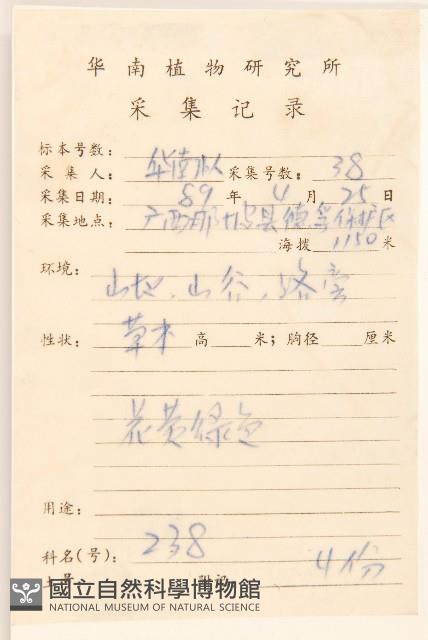 华南植物研究所
采集记录
标本号数：
采集人：华南队 采集号数：38
采集日期：89年4月25日
采集地点：广西那坡县德孚保护区
海拨1150米
环境：
山地、山谷、路旁
性状：草本 高 米；胸径 厘米
花黄绿色
用途：
科名(号)：238
4份
國立自然科學博物館
NATIONAL MUSEUM OF NATURAL SCIENCE